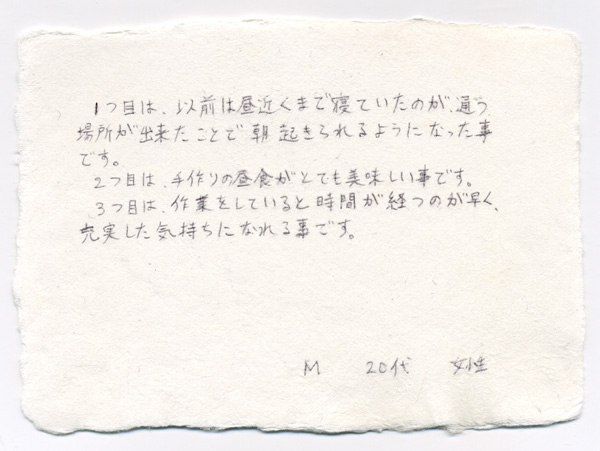 1つ目は、以前は昼近くまで寝ていたのが、通う
場所が出来たことで朝起きられるようになった事
です。
2つ目は、手作りの昼食がとても美味しい事です。
3つ目は、作業をしていると時間が経つのが早く、
充実した気持ちになれる事です。
M 20代 女性